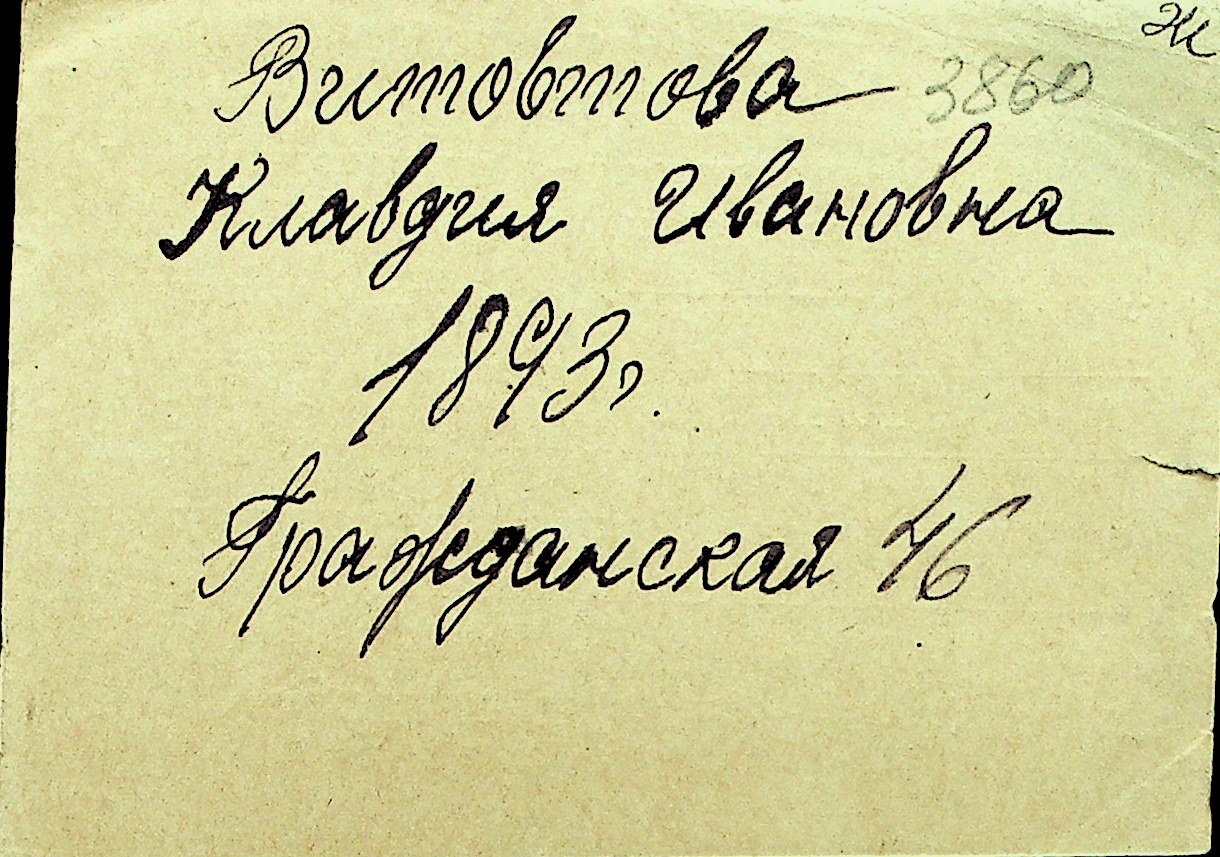 Ж
Витовтова 3860
Клавдия Ивановна
1893г.
Гражданская 46